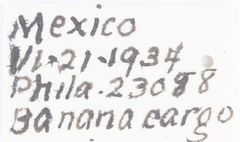 Mexico
VI-21-1937
Phila. 23088
Banana cargo